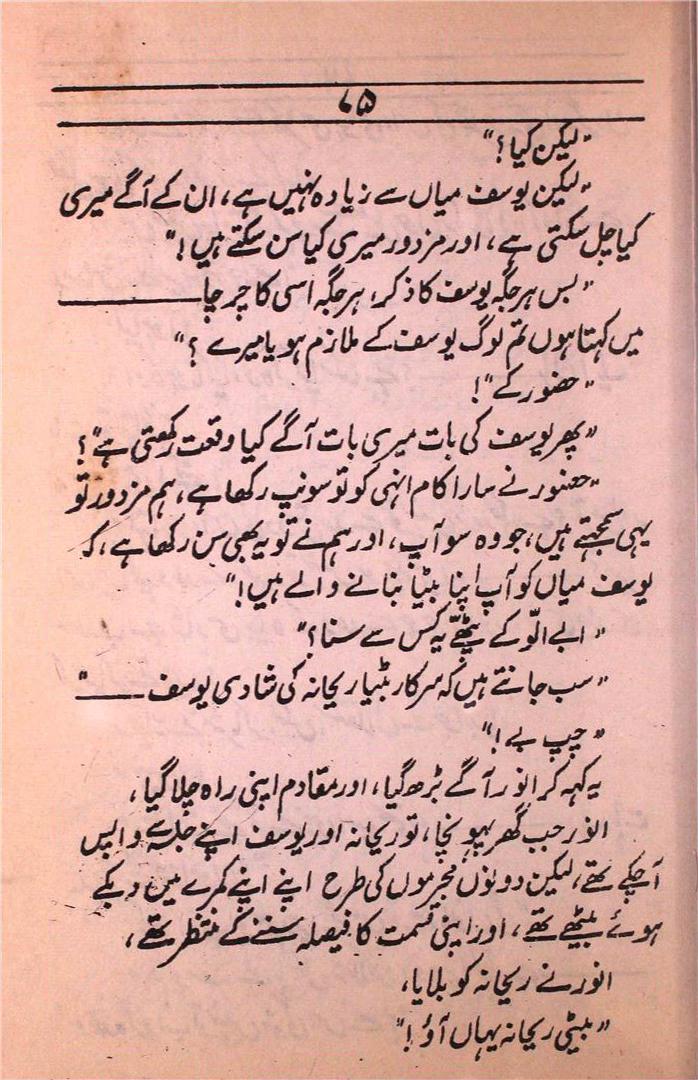 ۷۵
"لیکن کیا؟"
"لیکن یوسف میاں سے زیادہ نہیں ہے، ان کے آگے میری
کیا چل سکتی ہے، اور مزدور میری کیا سن سکتے ہیں!"
"بس ہر جگہ یوسف کا ذکر، ہر جگہ اسی کا چرچا ــــــــ
میں کہتا ہوں تم لوگ یوسف کے ملازم ہو یا میرے؟"
"حضور کے"!
"پھر یوسف کی بات میری بات آگے کیا وقعت رکھتی ہے"؟
"حضور نے سارا کام انہی کو تو سونپ رکھا ہے، ہم مزدور تو
یہی سمجھتے ہیں، جو وہ سو آپ، اور ہم نے تو یہ بھی سن رکھا ہے، کہ
یوسف میاں کو آپ اپنا بیٹا بنانے والے ہیں!"
"ابے الّو کے پٹھّے یہ کس سے سنا؟"
"سب جانتے ہیں کہ سرکار بٹیا ریحانہ کی شادی یوسف ــــــ"
"چپ بے!"
یہ کہہ کر انور آگے بڑھ گیا، اور مقادم اپنی راہ چلا گیا،
انور جب گھر پہونچا، تو ریحانہ اور یوسف اپنے جلسے واپس
آچکے تھے، لیکن دونوں مجرموں کی طرح اپنے اپنے کمرے میں دبکے
ہوئے بیٹھے تھے، اور اپنی قسمت کا فیصلہ سننے کے منتظر تھے،
انور نے ریحانہ کو بلایا،
"بیٹی ریحانہ یہاں آؤ!"